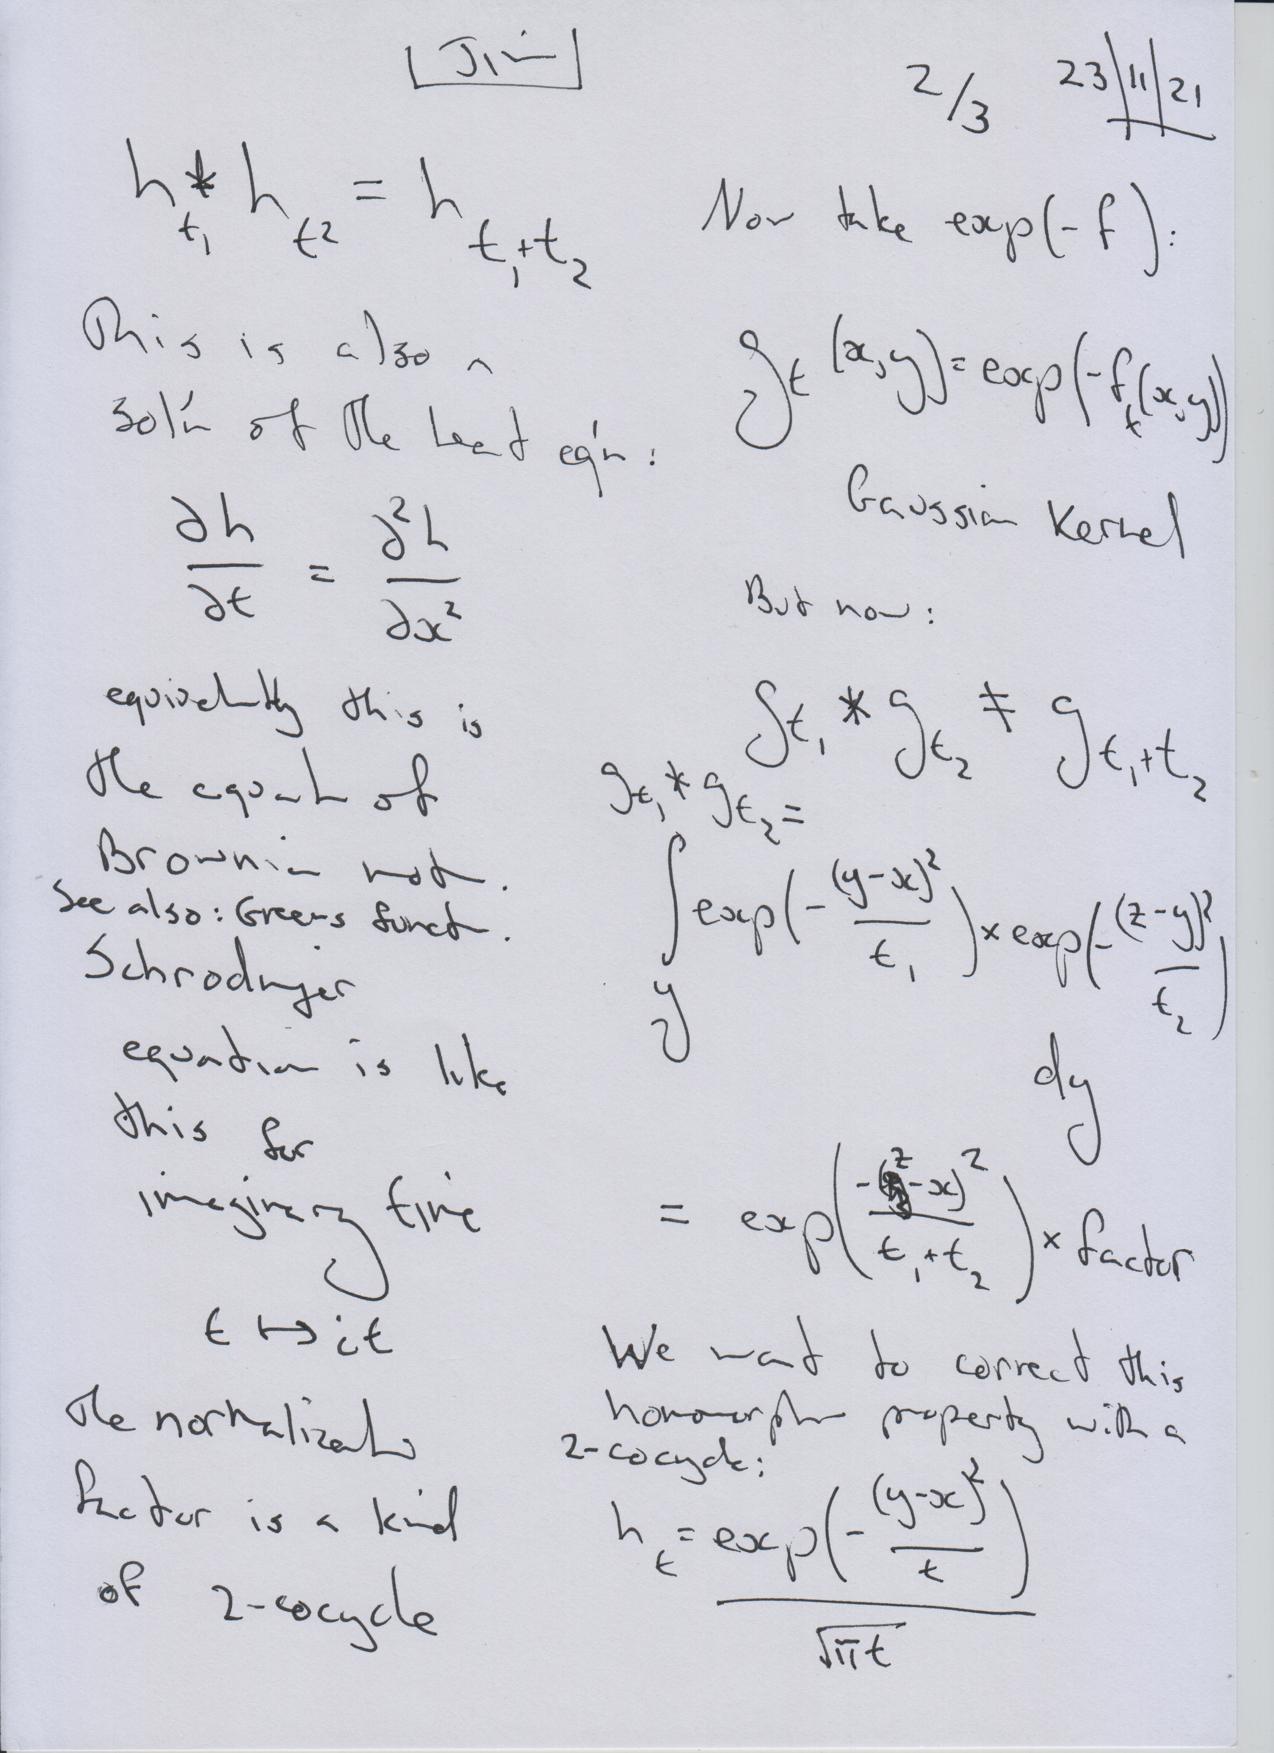 Jim
2/3 23/11/21
h_{t_1} * h_{t_2} = h_{t_1+t_2}
This is also a
sol'n of the heat eq'n:
∂h/∂t = ∂²h/∂x²
equivalently this is
the equat of
Brownian mot.
See also: Greens funct.
Schrodinger
equation is like
this for
imaginary time
t ↦ it
the normalizat
factor is a kind
of 2-cocycle
Now take exp(-f):
g_t(x,y) = exp(-f_t(x,y))
Gaussian Kernel
But now:
g_{t_1} * g_{t_2} ≠ g_{t_1+t_2}
g_{t_1} * g_{t_2} =
∫_y exp(-(y-x)²/t_1) × exp(-(z-y)²/t_2)
dy
= exp(-(z-x)²/(t_1+t_2)) × factor
We want to correct this
homomorphm property with a
2-cocycle:
h_t = exp(-(y-x)²/t)/√πt